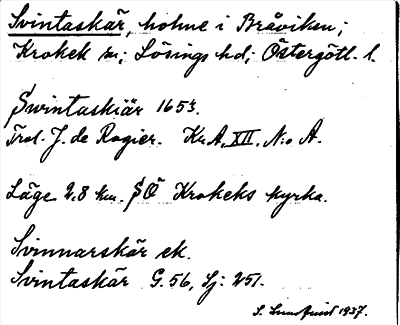 Svintaskär, holme i Bråviken;
Krokek sn; Lösings hd; Östergötl. l.
Swintaskiär 1653.
Trol. J. de Rogier. Kr. A. XII. N:o A.
Läge 2,8 km. SÖ Krokeks kyrka.
Svinnarskär ek.
Svintaskär G. 56, Sj: 251.
S. Lundquist 1937.